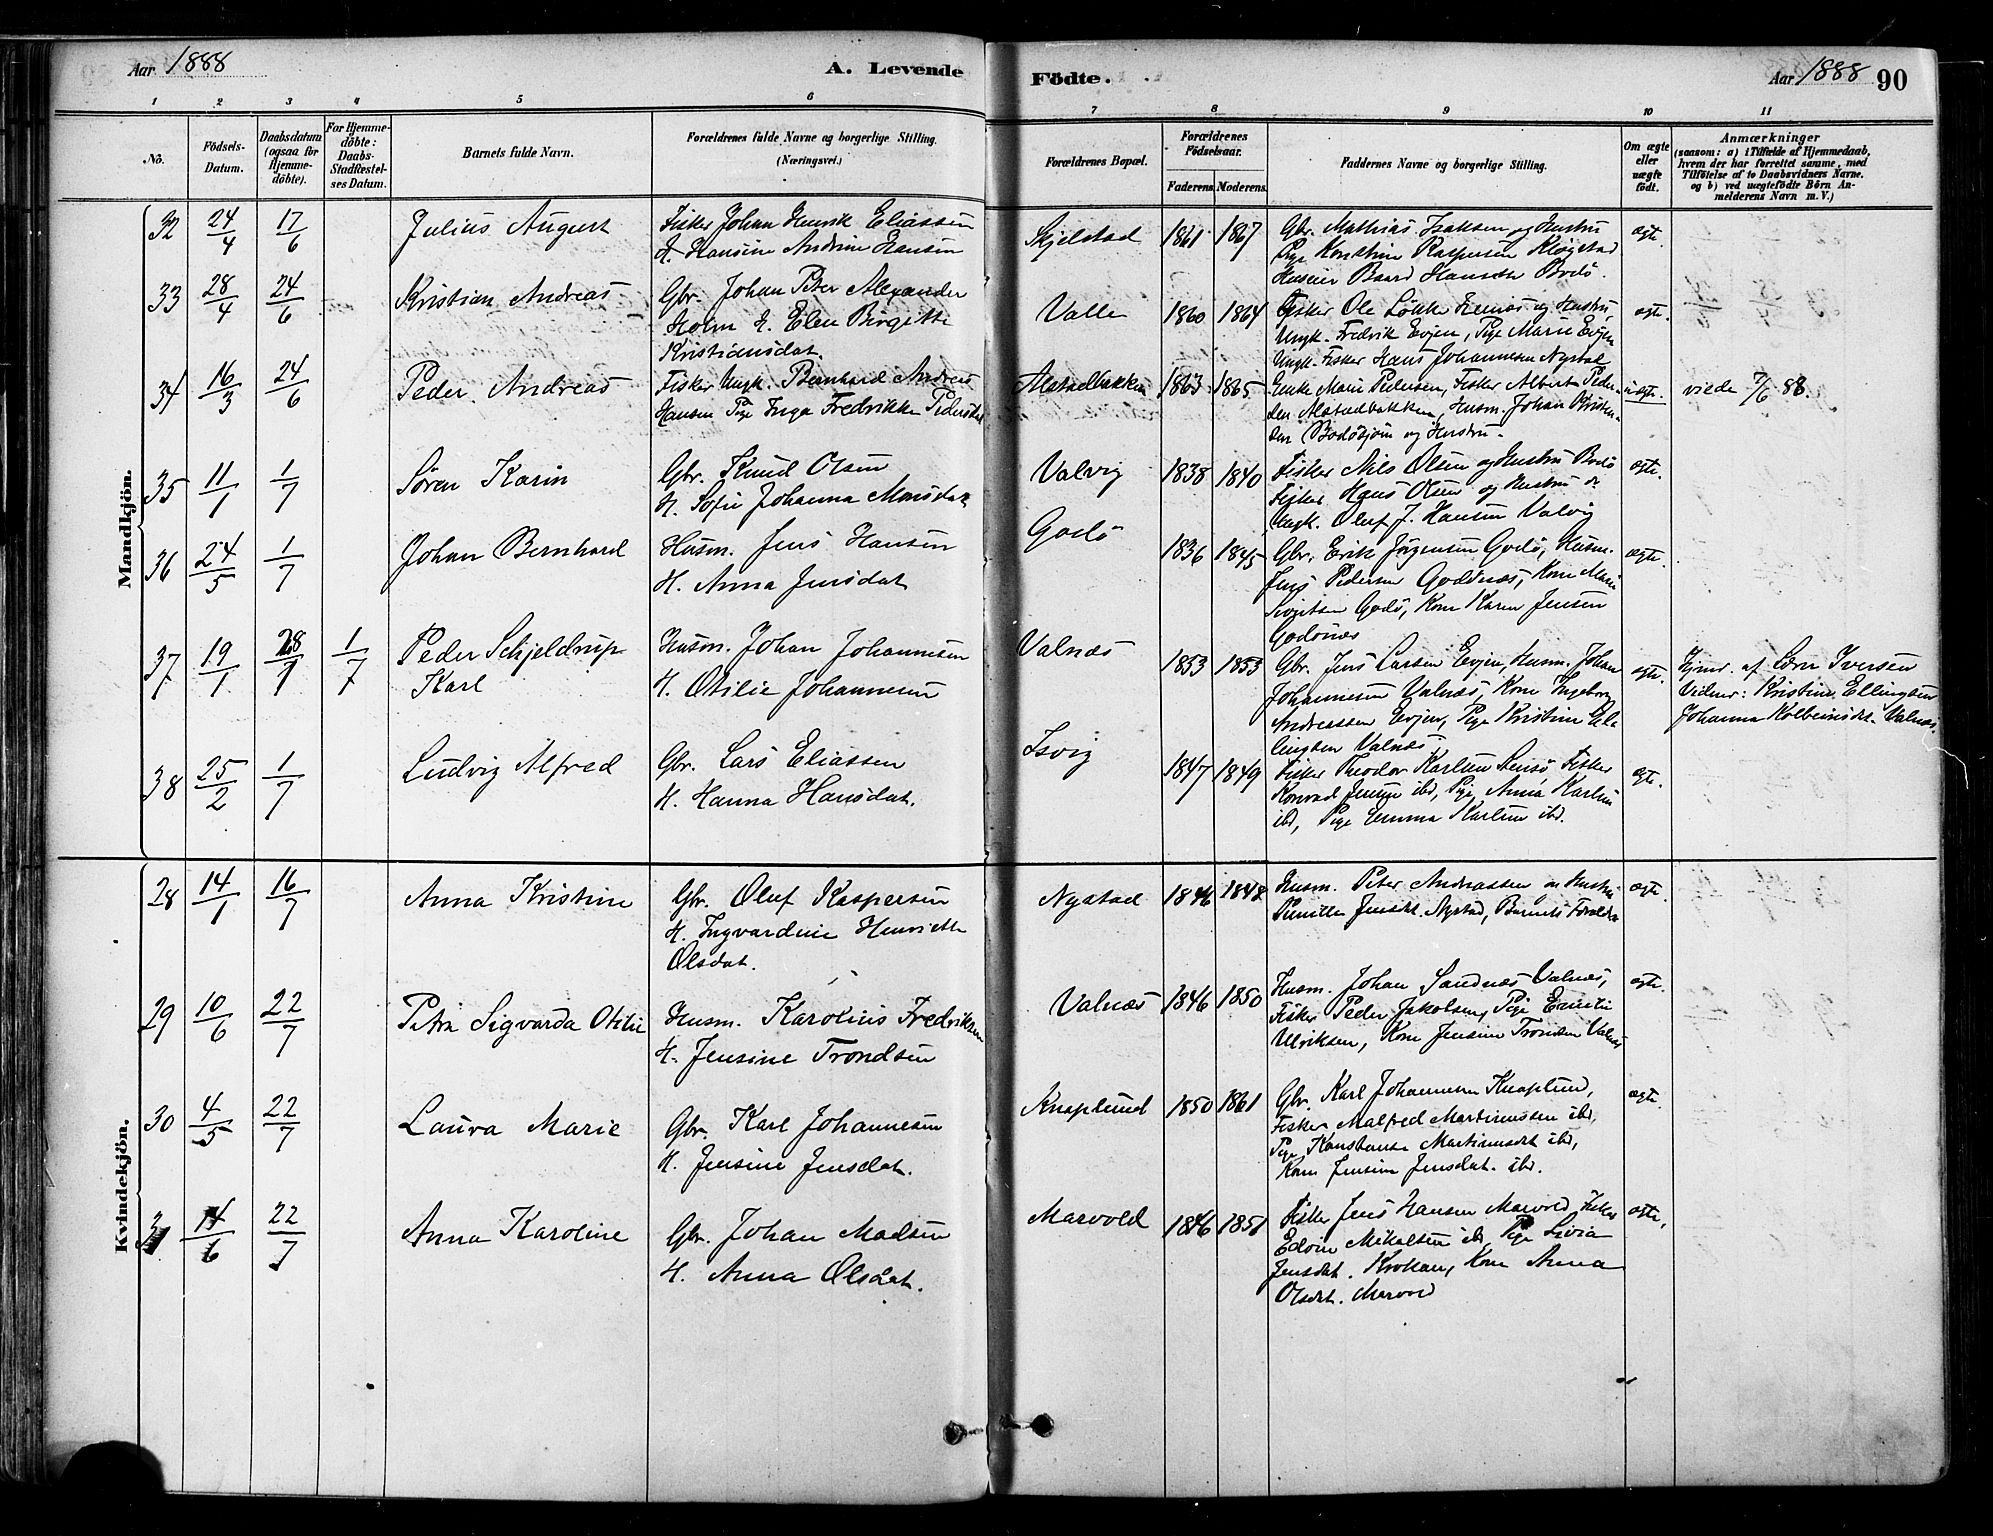 Aar 1888
A. Levende
Födte.
Aar 1888 90
1 2 3 4 5 6 7 8 9 10 11
No.
Födsels-
Datum.
Daabsdatum
(ogsaa for
Hjemme-
döbte).
For Hjemme-
döbte:
Daabs-
Stadfæstel-
ses Datum.
Barnets fulde Navn.
Forældrenes fulde Navne og borgerlige Stilling.
(Næringsvei.)
Forældrenes Bopæl.
Forældrenes
Födselsaar.
Faderens. Moderens.
Faddernes Navne og borgerlige Stilling.
Om ægte
eller
uægte
födt.
Anmærkninger
(saasom: a) i Tilfælde af Hjemmedaab,
hvem der har forrettet samme, med
Tilföielse af to Daabsvidners Navne.
og b) ved uægtefödte Börn An-
melderens Navn m. V.)
Mandkjön.
32 24/4 17/6 Julius August
Fisker Johan Henrik Eliassen
H. Hansine Andrine Hansen
Skjelstad 1861 1867
Gbr. Mathias Isaksen og Hustru
Pige Konstine Kaspersen Kløgstad
Baard Hansen Bodø.
ægte.
33 28/4 24/6 Kristian Andreas
Gbr. Johan Peter Alexander
Holm H. Elen Birgitte
Kristiansdat.
Valle 1860 1864
Fisker Ole Løkke Hernæs og Hustru,
Ungk. Fredrik Evjen, Pige Marie Evjen
Ungk. Fisker Hans Johannesen Nystad
ægte.
34 16/3 24/6 Peder Andreas
Fisker Ungk. Bernhard Andreas
Hansen Pige Inga Fredrikke Pedersdat
Alstadbakken 1863 1865
Enke Marie Pedersen, Fisker Albert Peder-
sen Alstadbakken, Husm. Johan Kristen-
sen Bodøsjøen og Hustru.
uægte. viede 7/6 88.
35 11/1 1/7 Søren Karin
Gbr. Knud Olsen
H. Sofie Johanna Monsdat
Valvig 1838 1840
Fisker Nils Olsen og Hustru Bodø
Fisker Hans Olsen og Hustru do
Ungk. Oluf J. Hansen Valvig
ægte.
36 24/5 1/7 Johan Bernhard
Husm. Jens Hansen
H. Anna Jensdat
Godø 1836 1845
Gbr. Erik Jörgensen Godø, Husm.
Jens Pedersen Godönæs, Kone Marie
Sivertsen Godö, Kone Karen Jensen
Godönæs
ægte.
37 19/1 28/1 1/7 Peder Schjeldrup
Karl
Husm. Johan Johannesen
H. Otilie Johannesen
Valnæs 1853 1853
Gbr. Jens Larsen Evjen, Husm. Johan
Johannesen Valnæs, Kone Ingeborg
Andreassen Evjen, Pige Kristine El-
lingsen Valnæs
ægte.
Hjmd. af Lærer Iversen
Vidner: Kristine Ellingsen
Johanna Kolbeinsdt. Valnæs.
38 25/2 1/7 Ludvig Alfred
Gbr. Lars Eliassen
H. Hanna Hansdat.
Isvig 1847 1849
Fisker Theodor Karlsen Seivsö, Fisker
Konrad Jensen ibd, Pige Anna Karlsen
ibd, Pige Emma Karlsen ibd.
ægte.
Kvindekjön.
28 14/1 16/7 Anna Kristine
Gbr. Oluf Kaspersen
H. Ingvardine Henriette
Olsdat.
Nystad 1846 1848
Husm. Peter Andreassen og Hustru
Pernille Jensdt. Nystad, Barnets Foreldre
ægte.
29 10/6 22/7 Petra Sigvarda Otilie
Husm. Karolius Fredriksen
H. Jensine Trondsen
Valnæs 1846 1850
Husm. Johan Sandnæs Valnæs,
Fisker Peder Jakobsen, Pige Emilie
Ulriksen, Kone Jensine Trondsen Valnæs
ægte.
30 4/5 22/7 Laura Marie
Gbr. Karl Johannesen
H. Jensine Jensdat.
Knaplund 1850 1861
Gbr. Karl Johannesen Knaplund,
Fisker Malfred Martinussen ibd,
Pige Konstanse Martinusdt ibd,
Kone Jensine Jensdat. ibd.
ægte.
31 14/6 22/7 Anna Karoline
Gbr. Johan Madsen
H. Anna Olsdat.
Marvold 1846 1851
Fisker Jens Hansen Marvold Fisker
Edvin Mikalsen ibd, Pige Livia
Jensdat. Krokan, Kone Anna
Olsdt. Marvold
ægte.